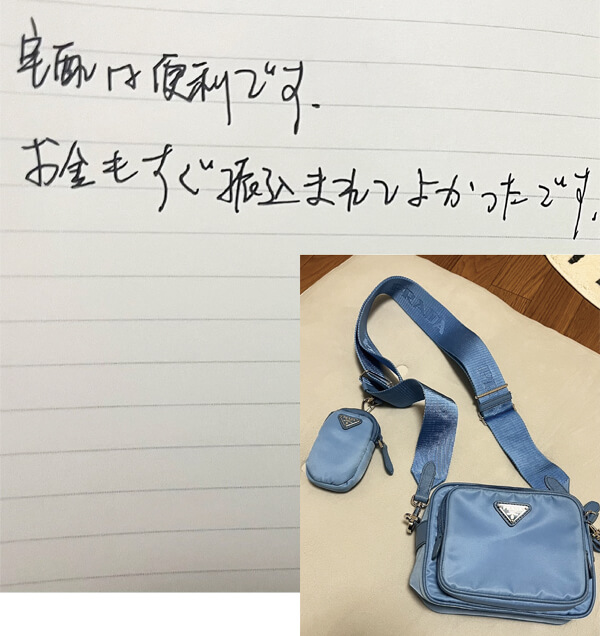 宅配は便利です.
お金もすぐ振込まれてよかったです.
PRADA